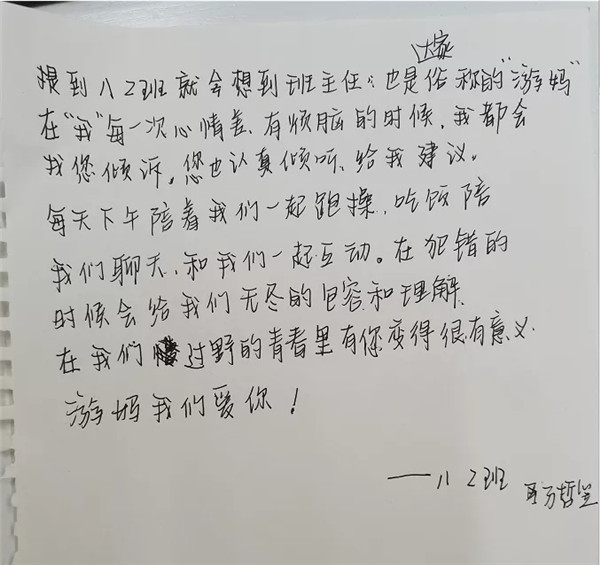 大家
提到八2班就会想到班主任:也是俗称的"游妈"
在"我"每一次心情差、有烦脑的时候,我都会
找您倾诉。您也认真倾听、给我建议。
每天下午陪着我们一起跑操,吃饭陪
我们聊天、和我们一起互动。在犯错的
时候会给我们无尽的包容和理解.
在我们过野的青春里有你变得很有意义.
游妈我们爱你!
——八2班